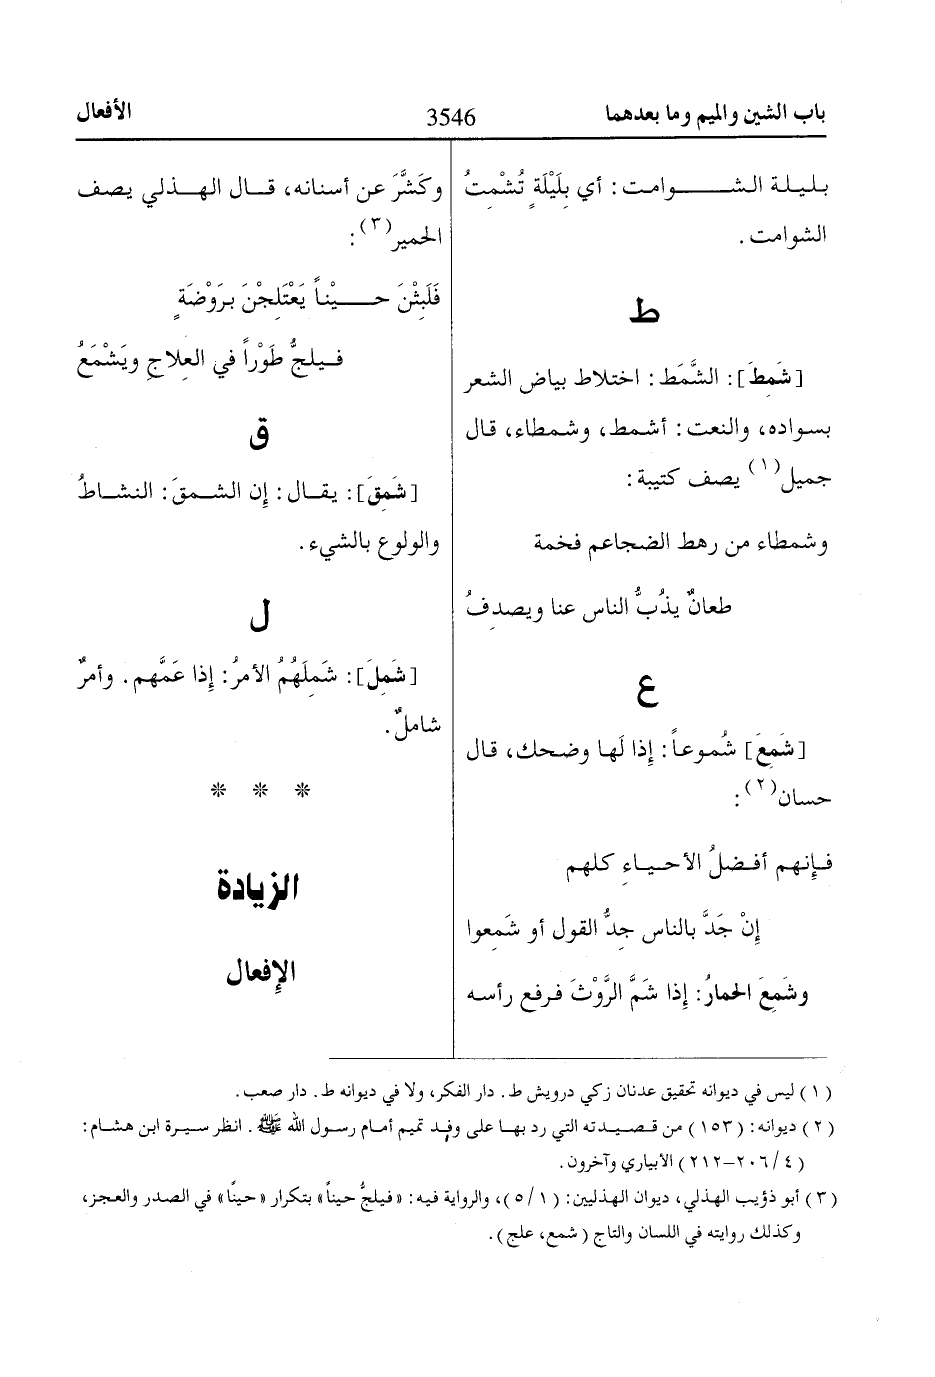 باب الشين والميم وما بعدهما
3546
الأفعال
بليلة الشوامت: أي بِلَيْلَةٍ تُشْمِتُ
الشوامت.
ط
[شَمِطَ]: الشَّمَط: اختلاط بياض الشعر
بسواده، والنعت: أشمط، وشمطاء، قال
جميل(١) يصف كتيبة:
وشمطاء من رهط الضجاعم فخمة
طعانٌ يذُبُّ الناس عنا ويصدِفُ
ع
[شَمِعَ] شُموعاً: إِذا لَها وضحك، قال
حسان(٢):
فإِنهم أفضلُ الأحياءِ كلهم
إِنْ جَدَّ بالناس جِدُّ القول أو شَمِعوا
وشَمِعَ الحمارُ: إِذا شَمَّ الرَّوْثَ فرفع رأسه
وكَشَّرَ عن أسنانه، قال الهذلي يصف
الحمير(٣):
فَلَبِثْنَ حيْناً يَعْتَلِجْنَ بَروْضَةٍ
فيلجُّ طَوْراً في العِلاجِ ويَشْمَعُ
ق
[شَمِقَ]: يقال: إِن الشمقَ: النشاطُ
والولوع بالشيء.
ل
[شَمِلَ]: شَمِلَهُمُ الأمرُ: إِذا عَمَّهم. وأمرٌ
شاملٌ.
* * *
الزيادة
الإِفعال
(١) ليس في ديوانه تحقيق عدنان زكي درويش ط. دار الفكر، ولا في ديوانه ط. دار صعب.
(٢) ديوانه: (١٥٣) من قصيدته التي رد بها على وفد تميم أمام رسول الله ﷺ. انظر سيرة ابن هشام:
(٤/ ٢٠٦–٢١٢) الأبياري وآخرون.
(٣) أبو ذؤيب الهذلي، ديوان الهذليين: (١/ ٥)، والرواية فيه: «فيلجُّ حيناً» بتكرار «حينًا» في الصدر والعجز،
وكذلك روايته في اللسان والتاج (شمع، علج).